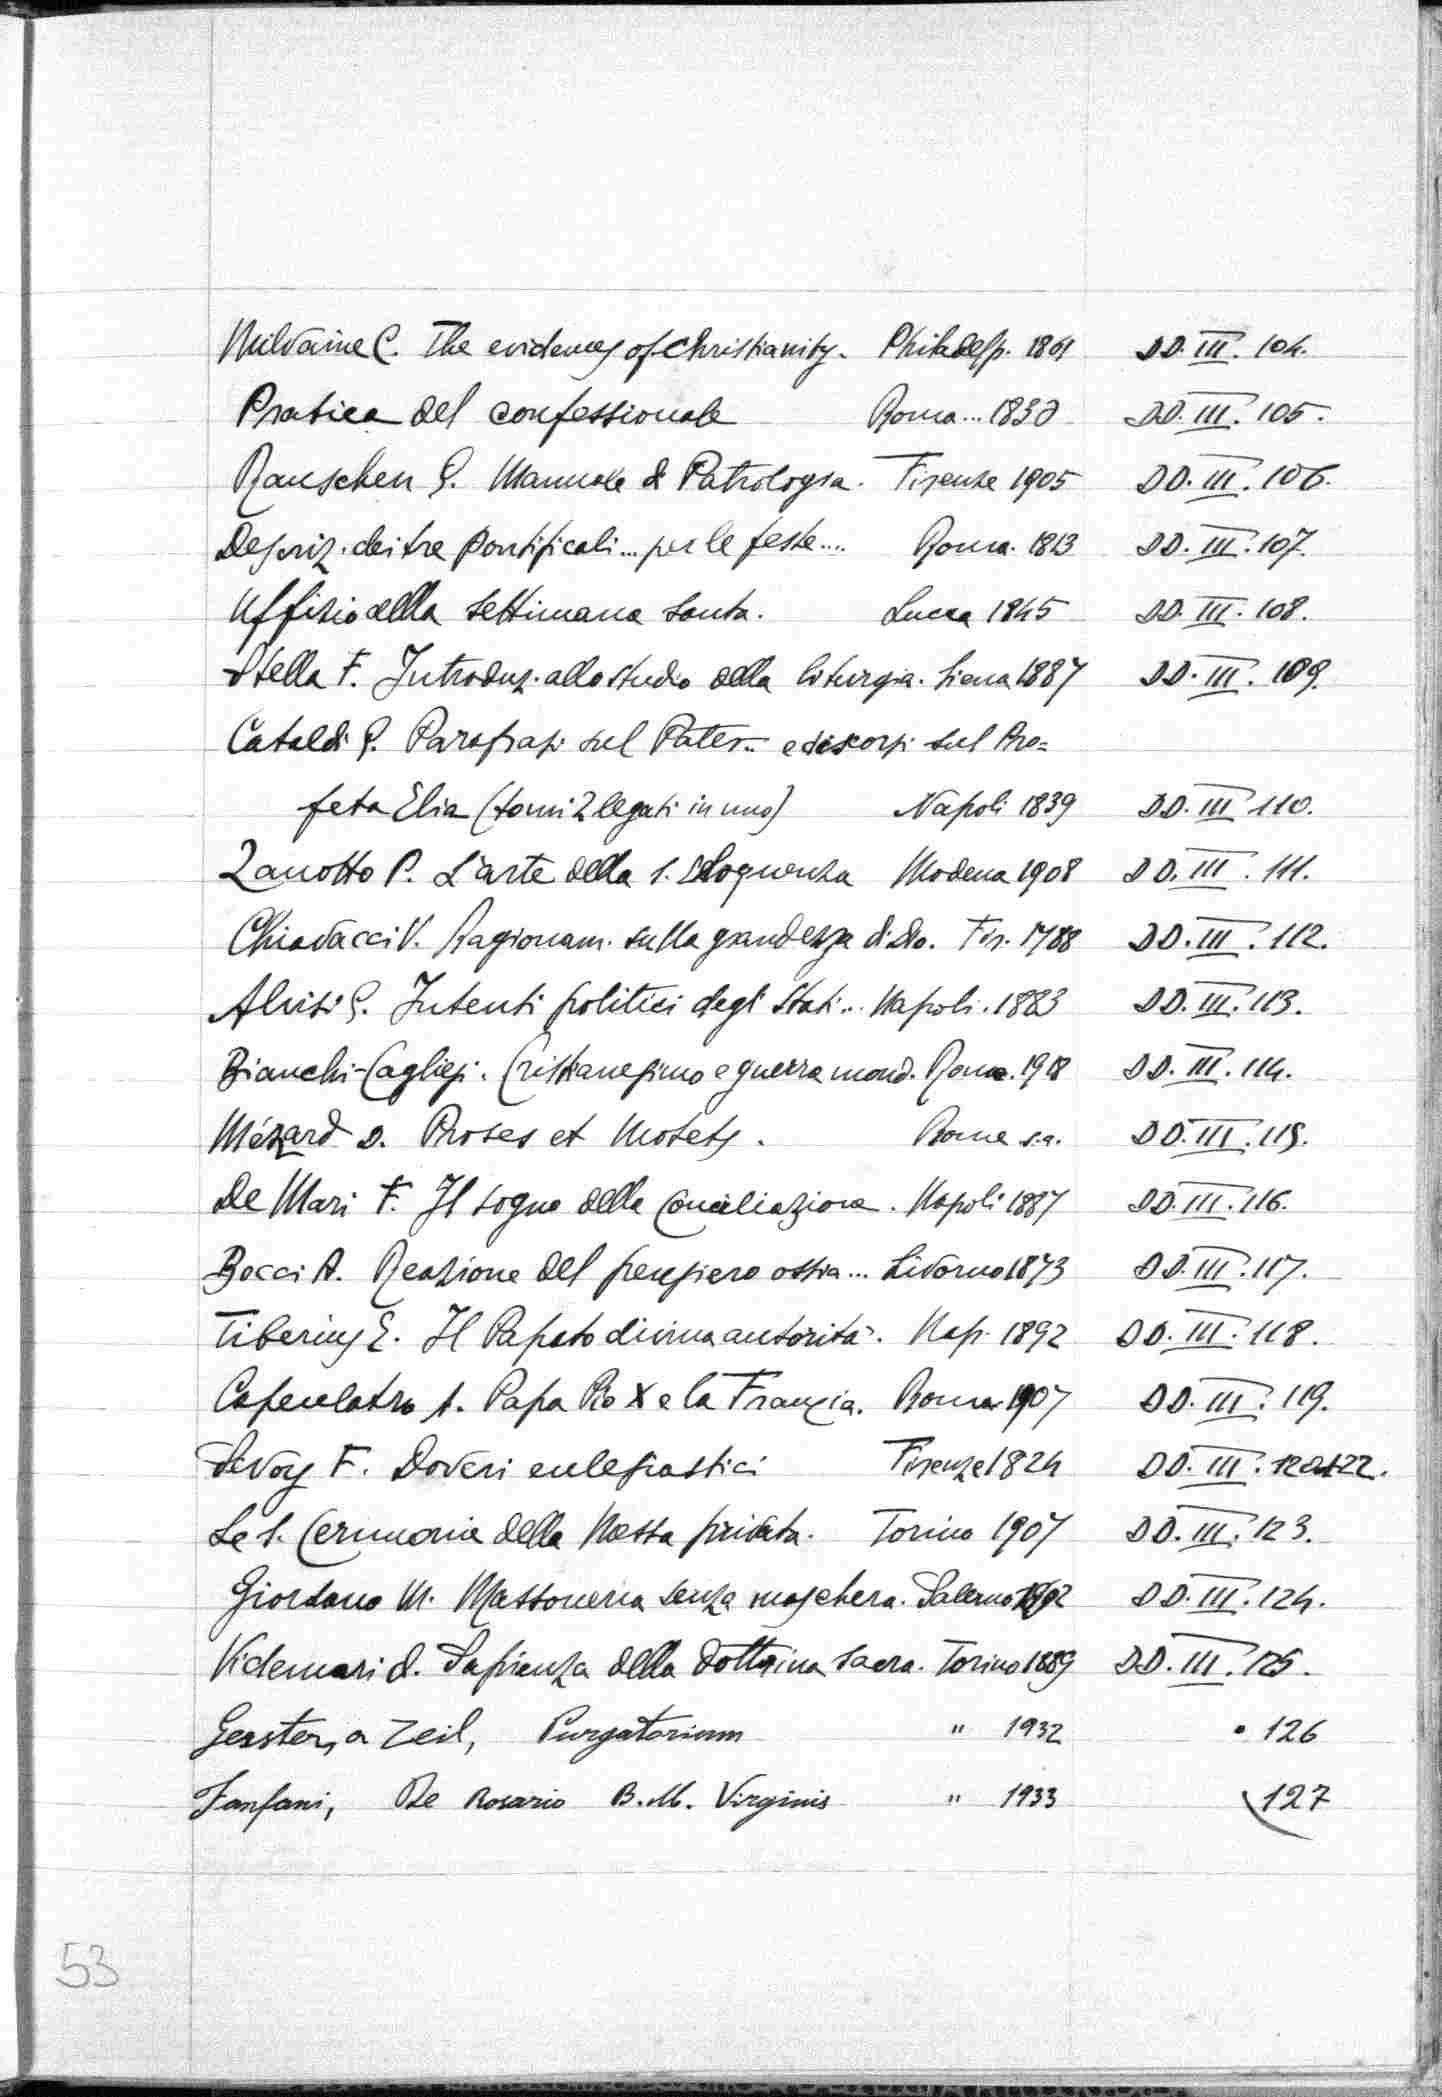 Milvaine C. The evidences of Christianity. Philadelp. 1861 DD. III. 104.
Pratica del confessionale Roma... 1830 DD. III. 105.
Rauschen G. Manuale di Patrologia. Firenze 1905 DD. III. 106.
Descriz. dei tre pontificali... per le feste.... Roma. 1813 DD. III. 107.
Uffizio della settimana santa. Lucca 1845 DD. III. 108.
Stella F. Introduz. allo studio della liturgia. Siena 1887 DD. III. 109.
Cataldi G. Parafrasi sul Pater.. e discorsi sul Pro=
feta Elia (tomi 2 legati in uno) Napoli 1839 DD. III 110.
Zanotto P. L'arte della s. Eloquenza Modena 1908 DD. III. 111.
Chiavacci V. Ragionam. sulla grandezza di Dio. Fir. 1788 DD. III. 112.
Alvisi G. Intenti politici degli Stati... Napoli. 1883 DD. III. 113.
Bianchi-Cagliesi. Cristianesimo e guerra mond. Roma. 1918 DD. III. 114.
Mézard D. Proses et Motets. Rome s.a. DD. III. 115.
De Mari F. Il sogno della Conciliazione. Napoli 1887 DD. III. 116.
Bocci A. Reazione del pensiero ossia... Livorno 1873 DD. III. 117.
Tiberius E. Il Papato divina autorità. Nap. 1892 DD. III. 118.
Capecelatro A. Papa Pio X e la Francia. Roma 1907 DD. III. 119.
Sevoy F. Doveri ecclesiastici Firenze 1824 DD. III. 120-122.
Le S. Cerimonie della Messa privata. Torino 1907 DD. III. 123.
Giordano M. Massoneria senza maschera. Salerno DD. III. 124.
Videmari d. Sapienza della dottrina sacra. Torino 1889 DD. III. 125.
Gerster, a Zeil, Purgatorium " 1932 • 126
Fanfani, De Rosario B.M. Virginis " 1933 127
53